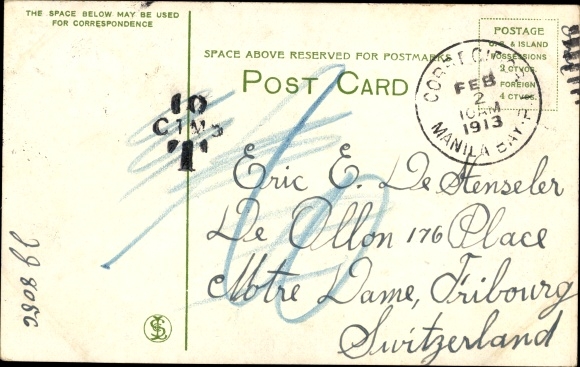 THE SPACE BELOW MAY BE USED
FOR CORRESPONDENCE
POSTAGE
U.S. & ISLAND
POSSESSIONS
2 CTVOS.
FOREIGN
4 CTVOS.
SPACE ABOVE RESERVED FOR POSTMARKS
POST CARD
FEB
2
10 AM
1913
MANILA BAY
10
CTMS
T
Eric E. De Stenseler
De Ollon 176 Place
Notre Dame, Fribourg
Switzerland